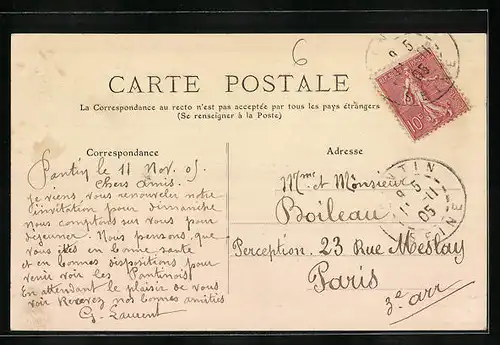 6
CARTE POSTALE
La Correspondance au recto n'est pas acceptée par tous les pays étrangers
(Se renseigner à la Poste)
Correspondance
Pantin le 11 Nov. 05
Chers Amis.
je viens, vous renouveler notre
l'invitation pour dimanche
nous comptons sur vous pour
déjeuner. Nous pensons, que
vous êtes en bonne santé
et en bonnes dispositions pour
venir voir les Pantinois
En attendant le plaisir de vous
voir Recevez nos bonnes amitiés
G. Laurent
Adresse
Mme et Monsieur
Boileau
Perception. 23 Rue Meslay
Paris
3e arr
10c
NTIN
8 5
11-11
05
SEINE